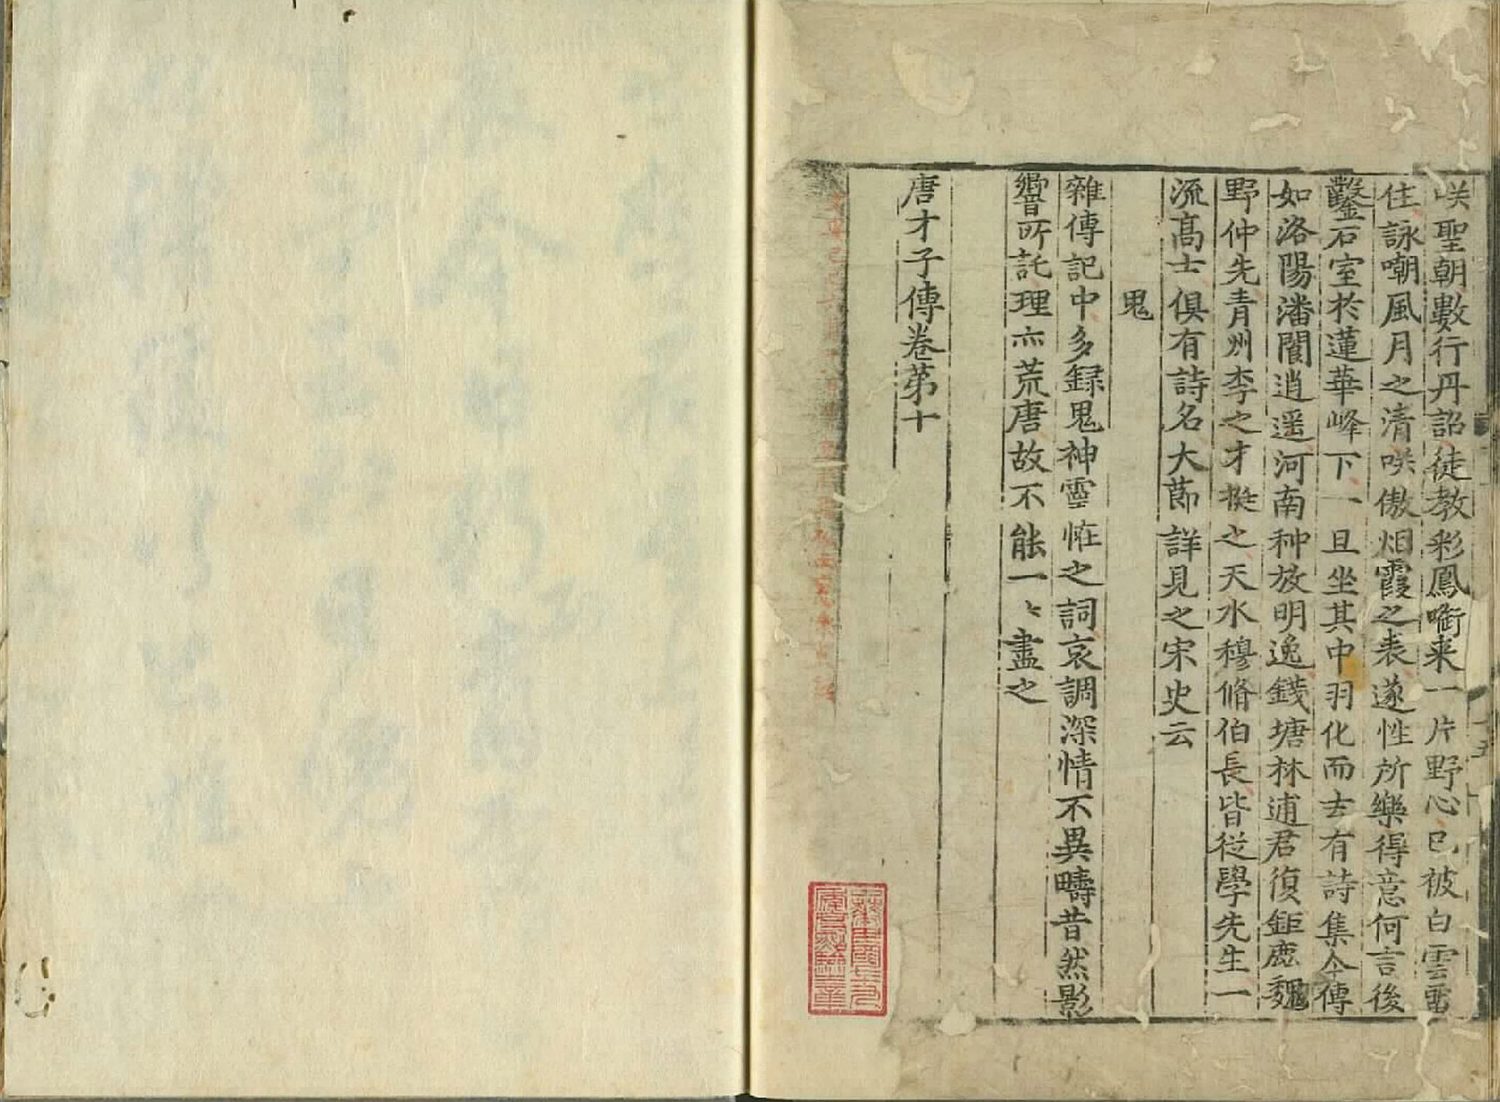 咲聖朝數行丹詔徒教彩鳳啣来一片野心已被白雲畱
住詠嘲風月之清咲傲烟霞之表遂性所樂得意何言後
鑿石室於蓮華峰下一旦坐其中羽化而去有詩集今傳
如洛陽潘閬逍遥河南种放明逸錢塘林逋君復鉅鹿魏
野仲先青州李之才挺之天水穆脩伯長皆従學先生一
流髙士俱有詩名大莭詳見之宋史云
鬼
雜傳記中多録鬼神霊怪之詞哀調深情不異疇昔然影
響所託理亦荒唐故不能一〻盡之
唐才子傳卷第十